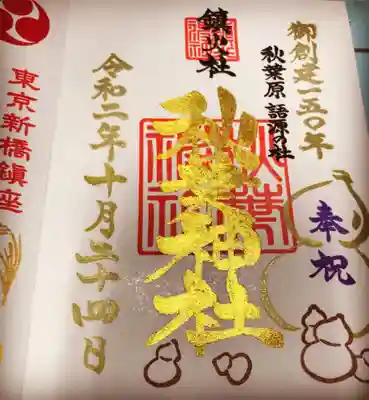 御創建一五〇年
秋葉原 語源の社
奉祝
鎮火社
秋葉神社
秋葉神社
令和二年十月二十四日
東京新橋鎮座